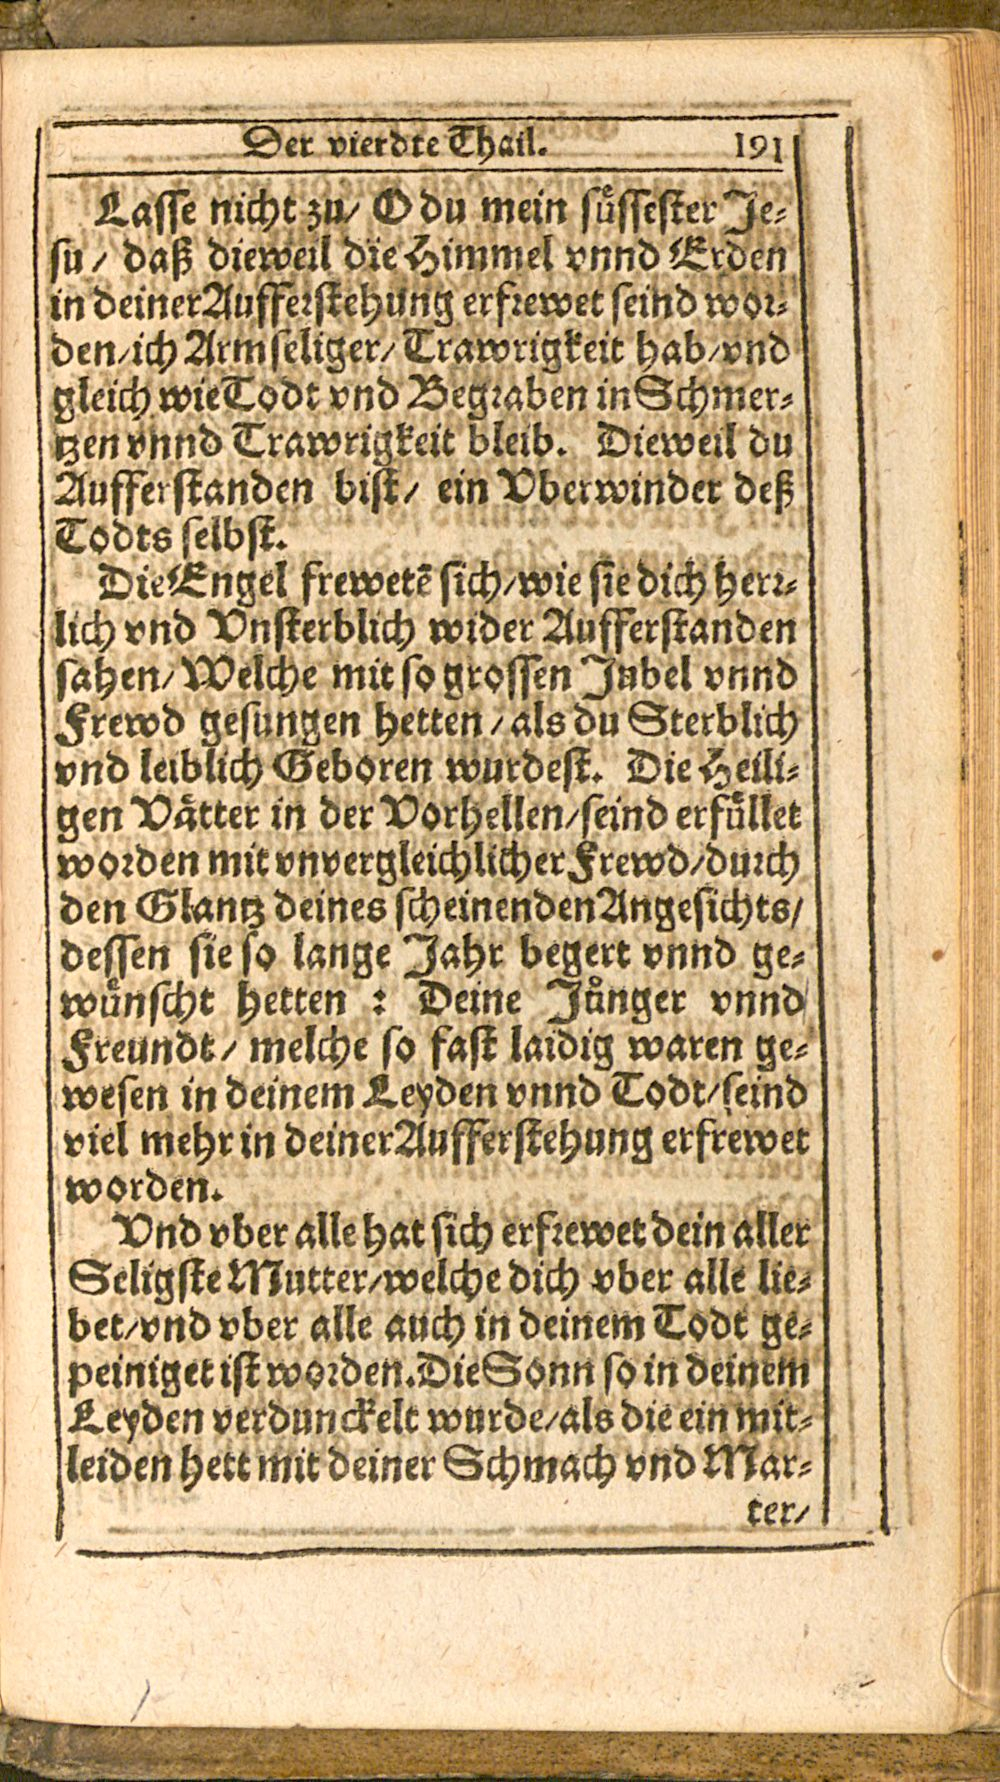 Der vierdte Thail. 191
Lasse nicht zu/ O du mein suͤssester Je⸗
su / daß dieweil die Himmel vnnd Erden
in deiner Aufferstehung erfrewet seind wor⸗
den/ich Armseliger/ Trawrigkeit hab/vnd
gleich wie Todt vnd Begraben in Schmer⸗
tzen vnnd Trawrigkeit bleib. Dieweil du
Aufferstanden bist/ ein Vberwinder deß
Todts selbst.
Die Engel frewetē sich/wie sie dich herr⸗
lich vnd Vnsterblich wider Aufferstanden
sahen/ Welche mit so grossen Jubel vnnd
Frewd gesungen hetten / als du Sterblich
vnd leiblich Geboren wurdest. Die Heili⸗
gen Vaͤtter in der Vorhellen/seind erfuͤllet
worden mit vnvergleichlicher Frewd/durch
den Glantz deines scheinenden Angesichts/
dessen sie so lange Jahr begert vnnd ge⸗
wuͤnscht hetten : Deine Juͤnger vnnd
Freundt/ melche so fast laidig waren ge⸗
wesen in deinem Leyden vnnd Todt/seind
viel mehr in deiner Aufferstehung erfrewet
worden.
Vnd vber alle hat sich erfrewet dein aller
Seligste Mutter/welche dich vber alle lie⸗
bet/vnd vber alle auch in deinem Todt ge⸗
peiniget ist worden. Die Sonn so in deinem
Leyden verdunckelt wurde/als die ein mit⸗
leiden hett mit deiner Schmach vnd Mar⸗
ter/